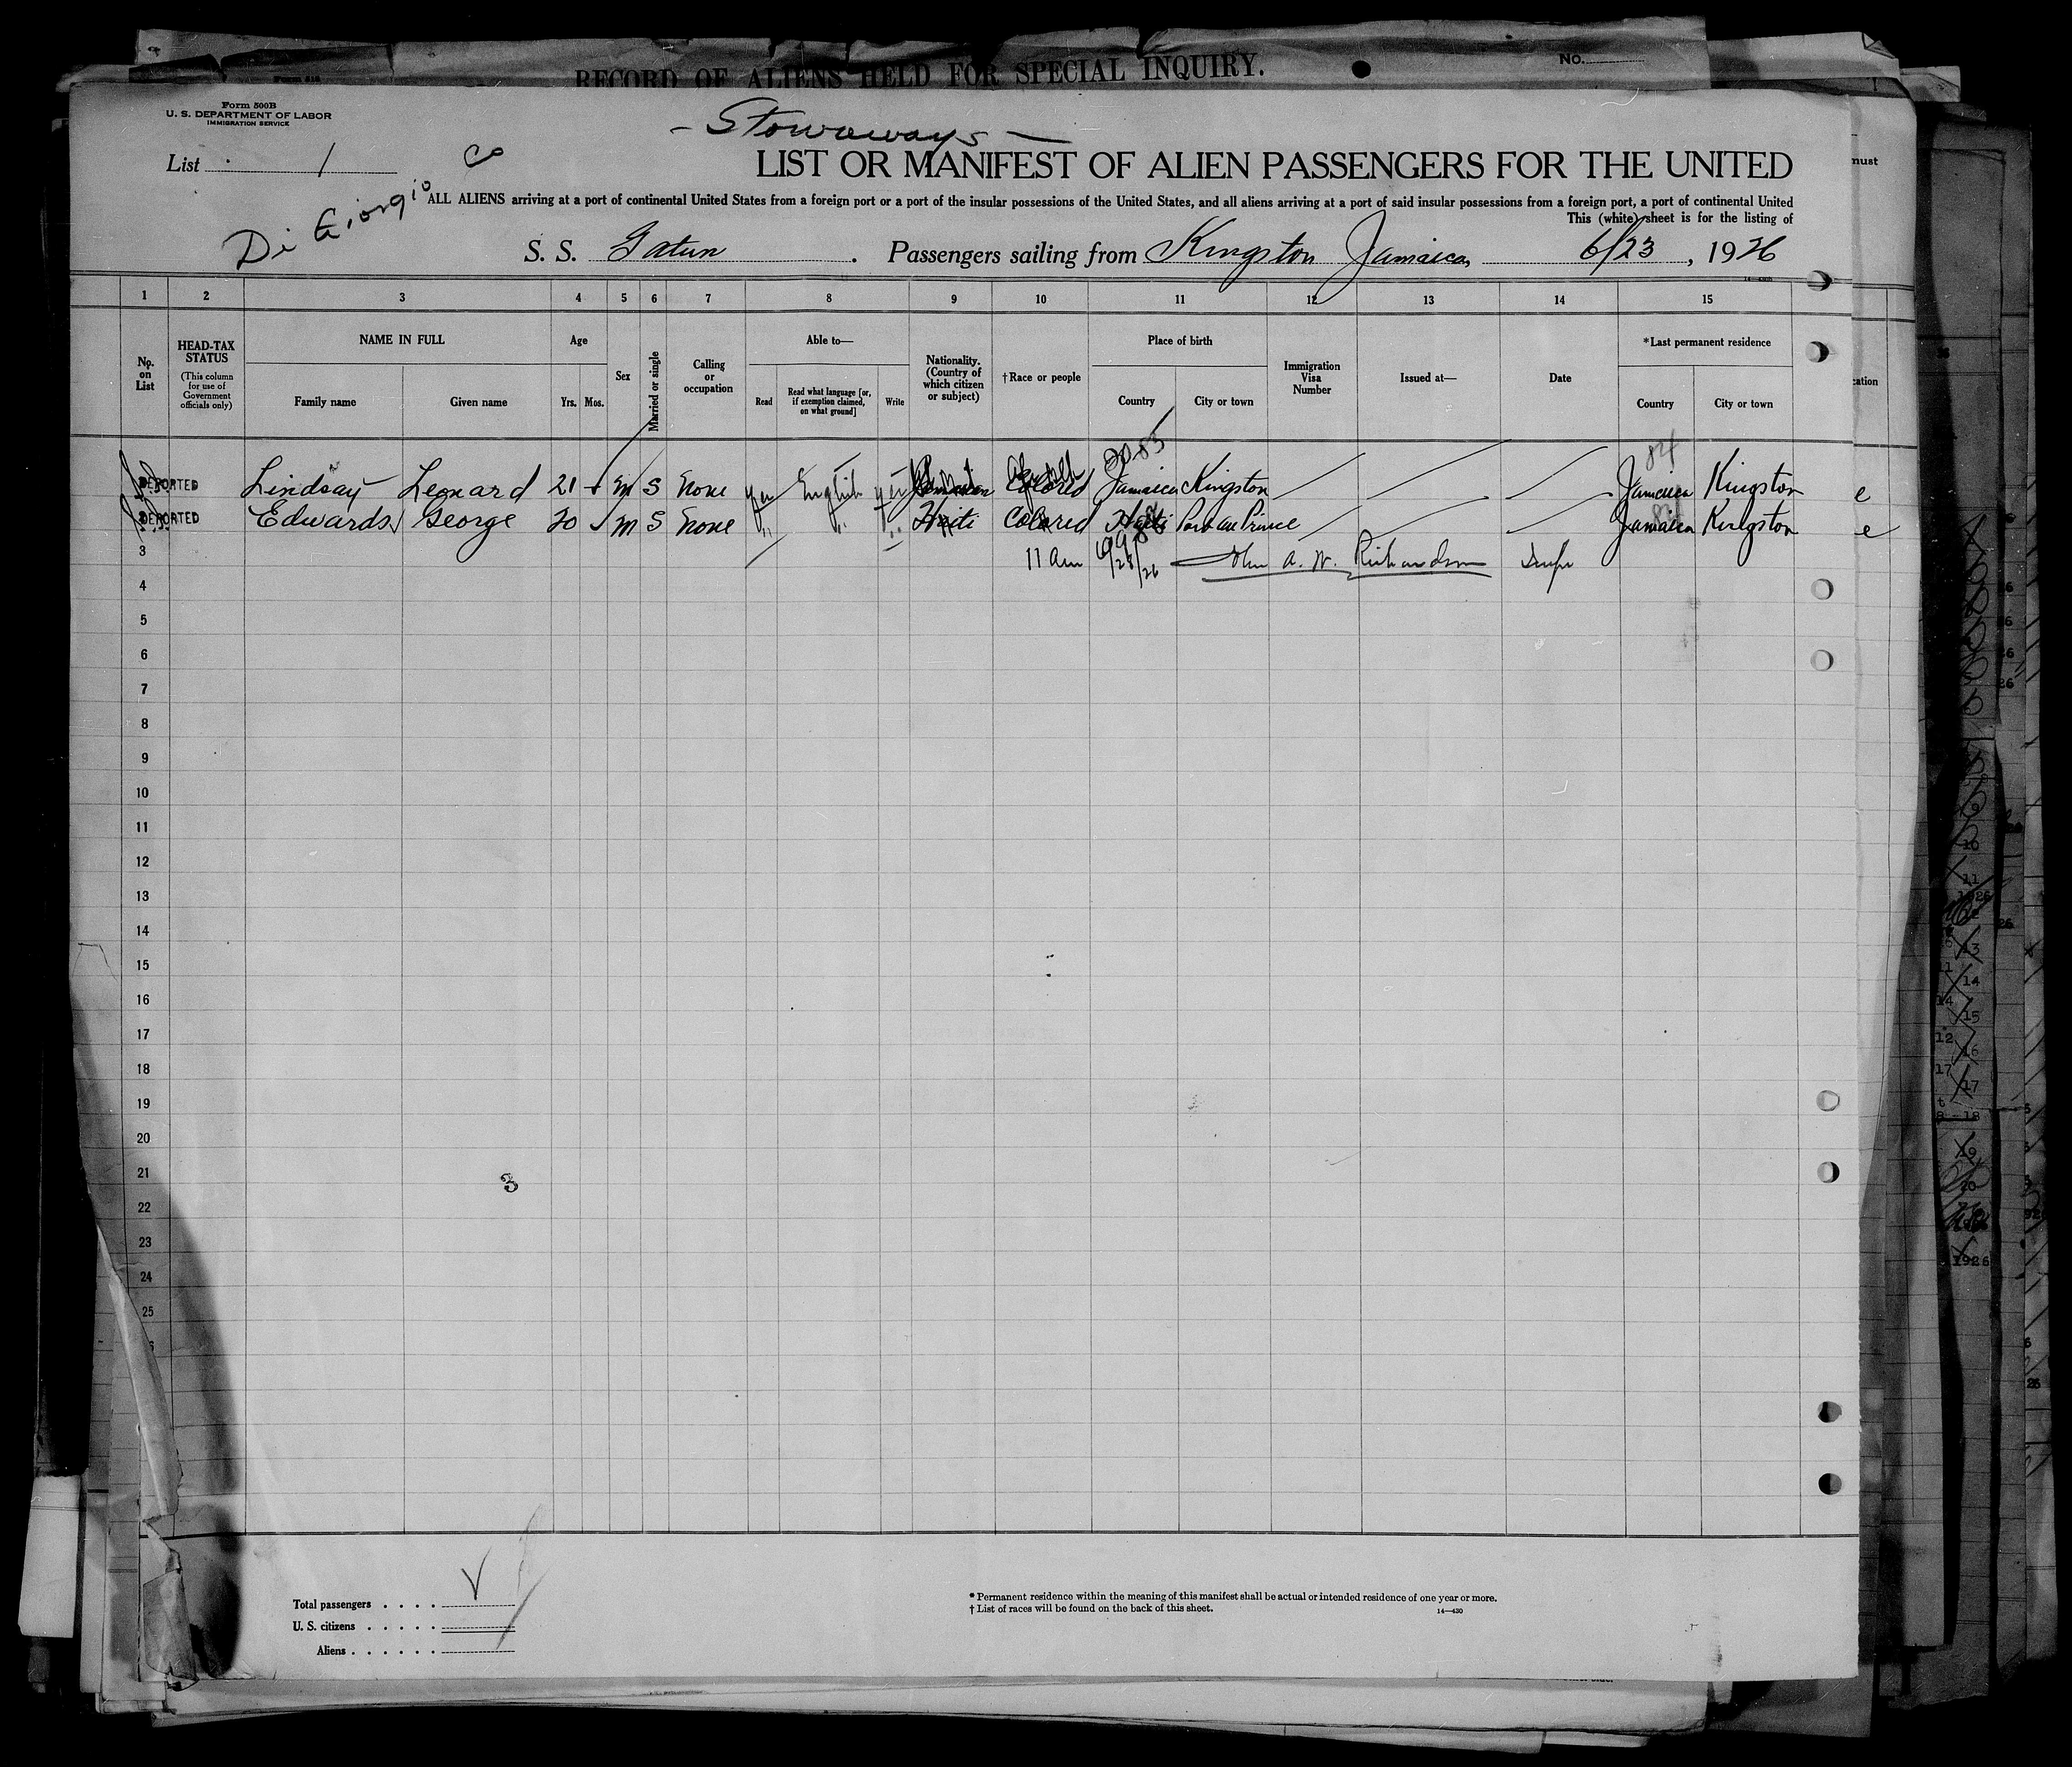 RECORD OF ALIENS HELD FOR SPECIAL INQUIRY.
No.
Form 500B
U. S. DEPARTMENT OF LABOR
IMMIGRATION SERVICE
- Stowaways -
List 1
Di Giorgio Co
LIST OR MANIFEST OF ALIEN PASSENGERS FOR THE UNITED
ALL ALIENS arriving at a port of continental United States from a foreign port or a port of the insular possessions of the United States, and all aliens arriving at a port of said insular possessions from a foreign port, a port of continental United
This (white) sheet is for the listing of
S. S. Gatun . Passengers sailing from Kingston Jamaica, 6/23, 1926
1 2 3 4 5 6 7 8 9 10 11 12 13 14 15
No. on List
HEAD-TAX STATUS
(This column for use of Government officials only)
NAME IN FULL
Family name Given name
Age
Yrs. Mos.
Sex
Married or single
Calling or occupation
Able to—
Read
Read what language [or, if exemption claimed, on what ground]
Write
Nationality. (Country of which citizen or subject)
†Race or people
Place of birth
Country City or town
Immigration Visa Number
Issued at—
Date
*Last permanent residence
Country City or town
20-83
84
DEPORTED Lindsay Leonard 21 m S None yes English yes Colored Jamaica Kingston Jamaica Kingston
DEPORTED Edwards George 20 m S None " " " Haiti Colored Haiti Port au Prince Jamaica Kingston
3 11 am 6/28/26 John A. W. Richardson
4
5
6
7
8
9
10
11
12
13
14
15
16
17
18
19
20
21
3
22
23
24
25
Total passengers
U. S. citizens
Aliens
* Permanent residence within the meaning of this manifest shall be actual or intended residence of one year or more.
† List of races will be found on the back of this sheet.
14—430